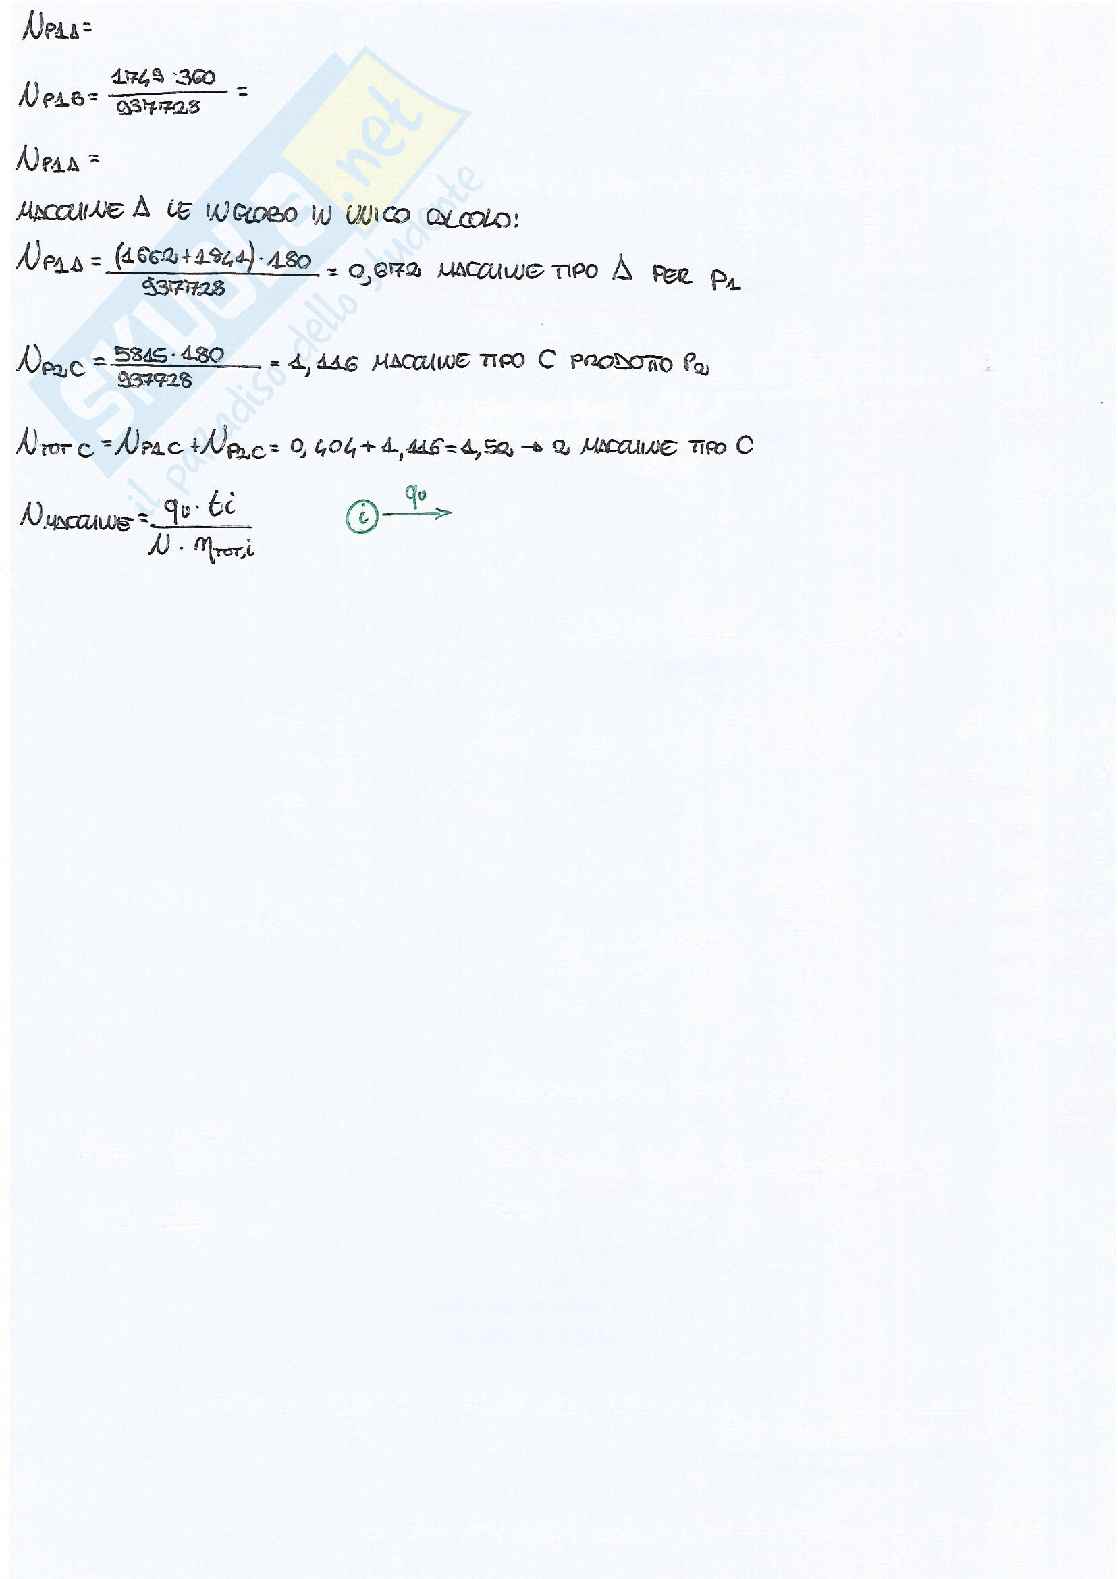 N P1A =
N P1B = 1749 · 360 / 937728 =
N P1A =
MACCHINE A LE INGLOBO IN UNICO CALCOLO:
N P1A = (1662+1841) · 180 / 937728 = 0,672 MACCHINE TIPO A PER P1
N P2C = 5815 · 180 / 937728 = 1,116 MACCHINE TIPO C PRODOTTO P2
N TOT C = N P1C + N P2C = 0,404 + 1,116 = 1,52 → 2 MACCHINE TIPO C
N MACCHINE = qu · ti / N · η TOT,i
i qu
SKUOLA.net
il paradiso dello studente